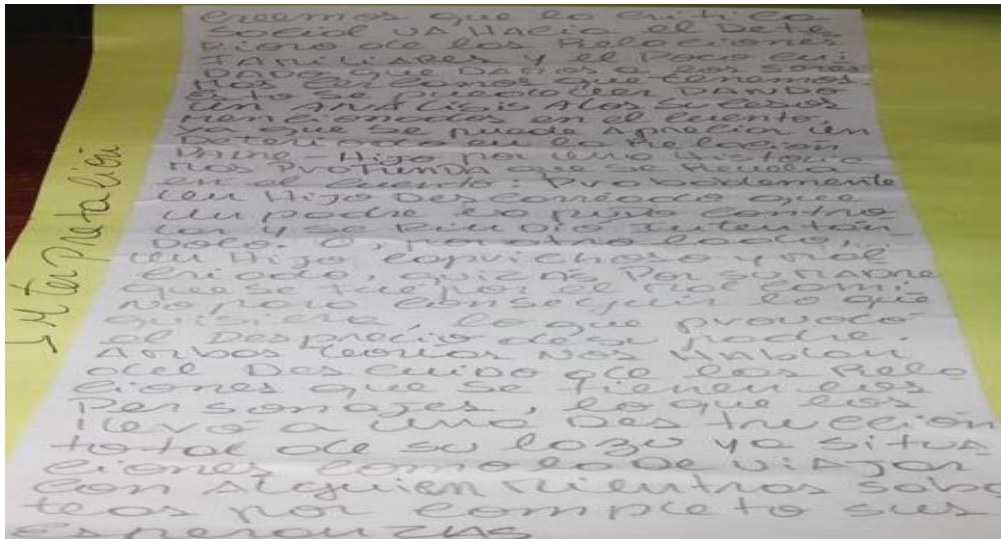 Interpretación
creemos que la crítica
social va hacia el dete
rioro de las relaciones
familiares y el poco cui
dado que damos a los
más cercanos que tenemos.
esto se puede leer dando
un análisis a los sucesos
mencionados en el cuento,
ya que se puede apreciar un
deteriodo en la relación
padre-hijo por una historia
más profunda que se revela
en el cuento: probablemente
un hijo descarriado que
un padre no pudo contro
lar y se rindió intentán
dolo. O, por otro lado,
un hijo caprichoso y mal
criado, quizás por su madre
que se fue por el mal cami
no para conseguir lo que
quisiera, lo que provocó
el desprecio de su padre.
Ambas teorías nos hablan
del descuido de las rela
ciones que se tienen los
personajes, lo que los
llevó a una destrucción
total de su lazo y a situa
ciones como lo de viajar
con alguien mientras sabo
teas por completo sus
esperanzas